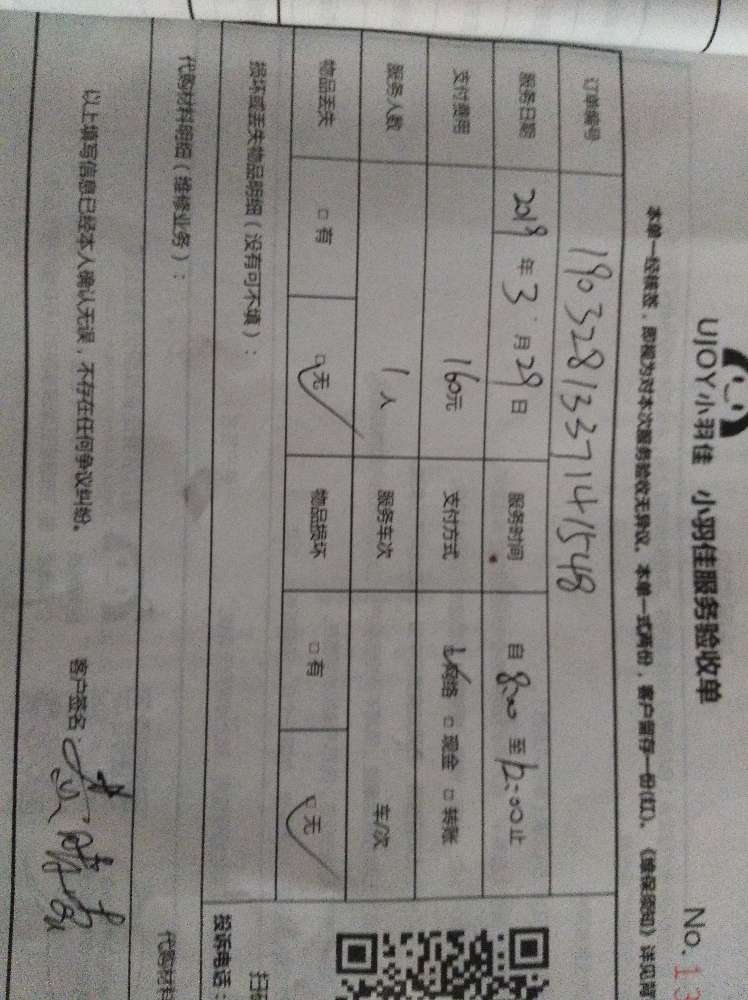 UJOY小羽佳 小羽佳服务验收单 No. 13
本单一经核签，即视为对本次服务验收无异议。本单一式两份，客户留存一份(红)。《维保须知》详见背
订单编号 1903281337141548
服务日期 2019年3月29日 服务时间 自8:00至12:00止
支付费用 160元 支付方式 □网络 □现金 □转账
服务人数 1人 服务车次 车/次
物品丢失 □有 □无 物品损坏 □有 □无
损坏或丢失物品明细（没有可不填）：
扫
投诉电话：
代购材料明细（维修业务）：
代购材料
以上填写信息已经本人确认无误，不存在任何争议纠纷。 客户签名：